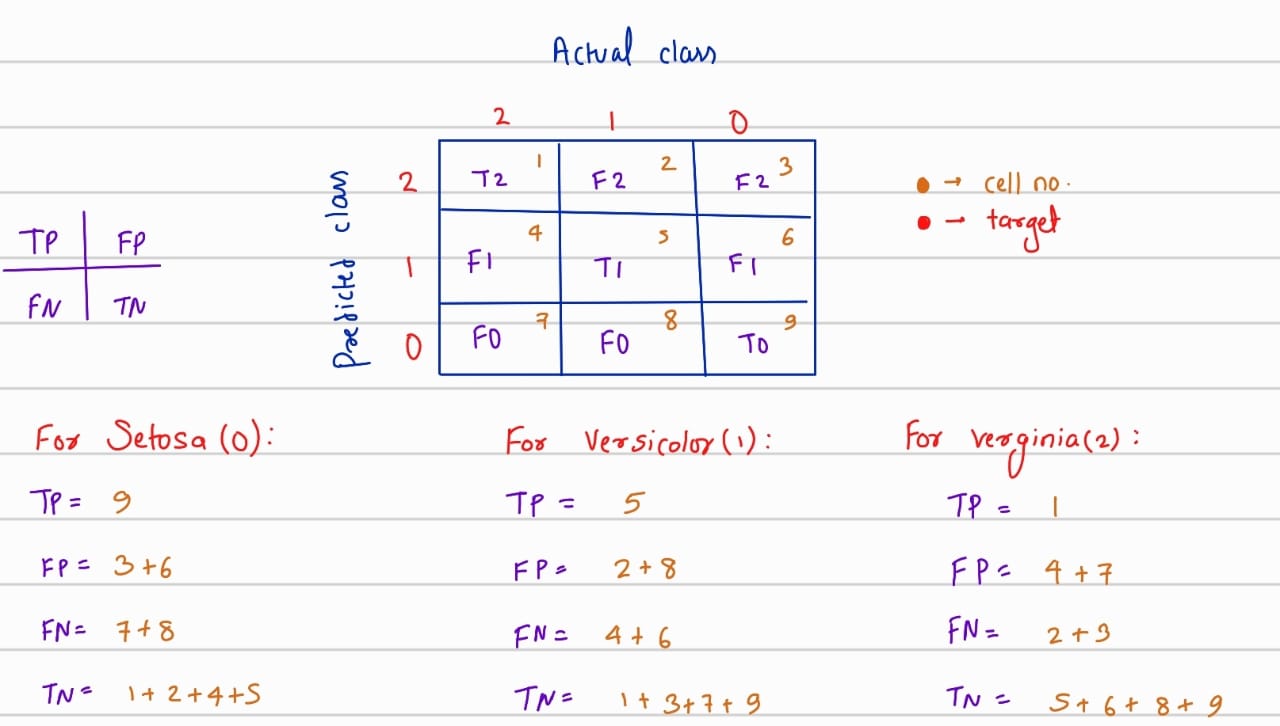 Actual class
2 1 0
Predicted class
2 T2 1 F2 2 F2 3
1 F1 4 T1 5 F1 6
0 F0 7 F0 8 T0 9
TP FP
FN TN
→ cell no.
→ target
For Setosa (0):
TP = 9
FP = 3+6
FN = 7+8
TN = 1+2+4+5
For Versicolor (1):
TP = 5
FP = 2+8
FN = 4+6
TN = 1+3+7+9
For verginia (2):
TP = 1
FP = 4+7
FN = 2+3
TN = 5+6+8+9